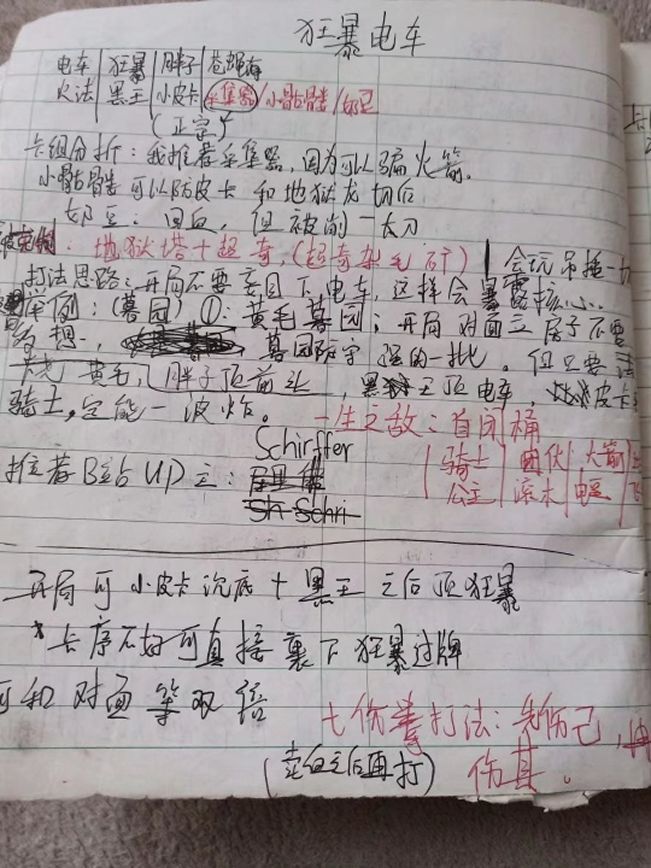 狂暴电车
电车|狂暴|胖子|苍蝇海
火法|黑王|小皮卡|采集器/小骷髅/奶豆
(正宗)
卡组分析:我推荐采集器,因为可以骗火箭。
小骷髅可以防皮卡和地狱龙切后
奶豆:回血,但被削一大刀
:地狱塔+超奇,(超奇杂毛石矿)|会玩吊捶一切
打法思路:开局不要盲目下电车,这样会暴露核心..
举例:(墓园)①:黄毛墓园;开局对面立房子不要
多想.,墓园防守强的一批。但只要法
卡老 黄毛,胖子顶前头,黑王顶电车,皮卡
骑士,定能一波炸。
一生之敌:自闭桶
|骑士|团伙|火箭|
公主|滚木|电|飞
推荐B站UP主:Schirffer
开局可小皮卡沉底+黑王之后顶狂暴
*卡序不好可直接裹下狂暴过牌
可和对面等双倍
七伤拳打法:先伤己,
伤其。
(卖血之后再打)